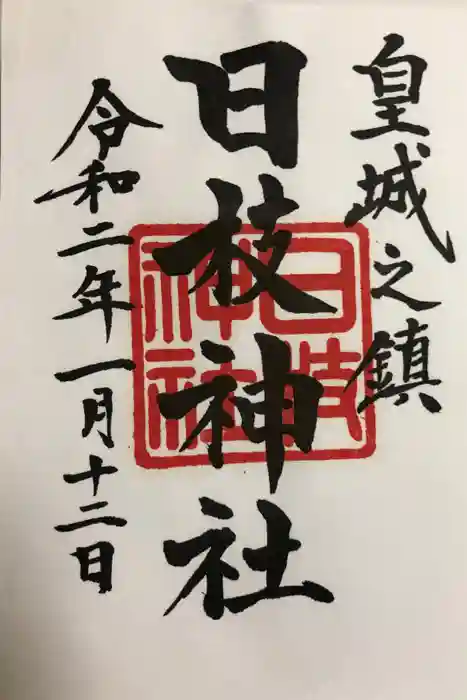 皇城之鎮
日枝神社
日枝神社
令和二年一月十二日